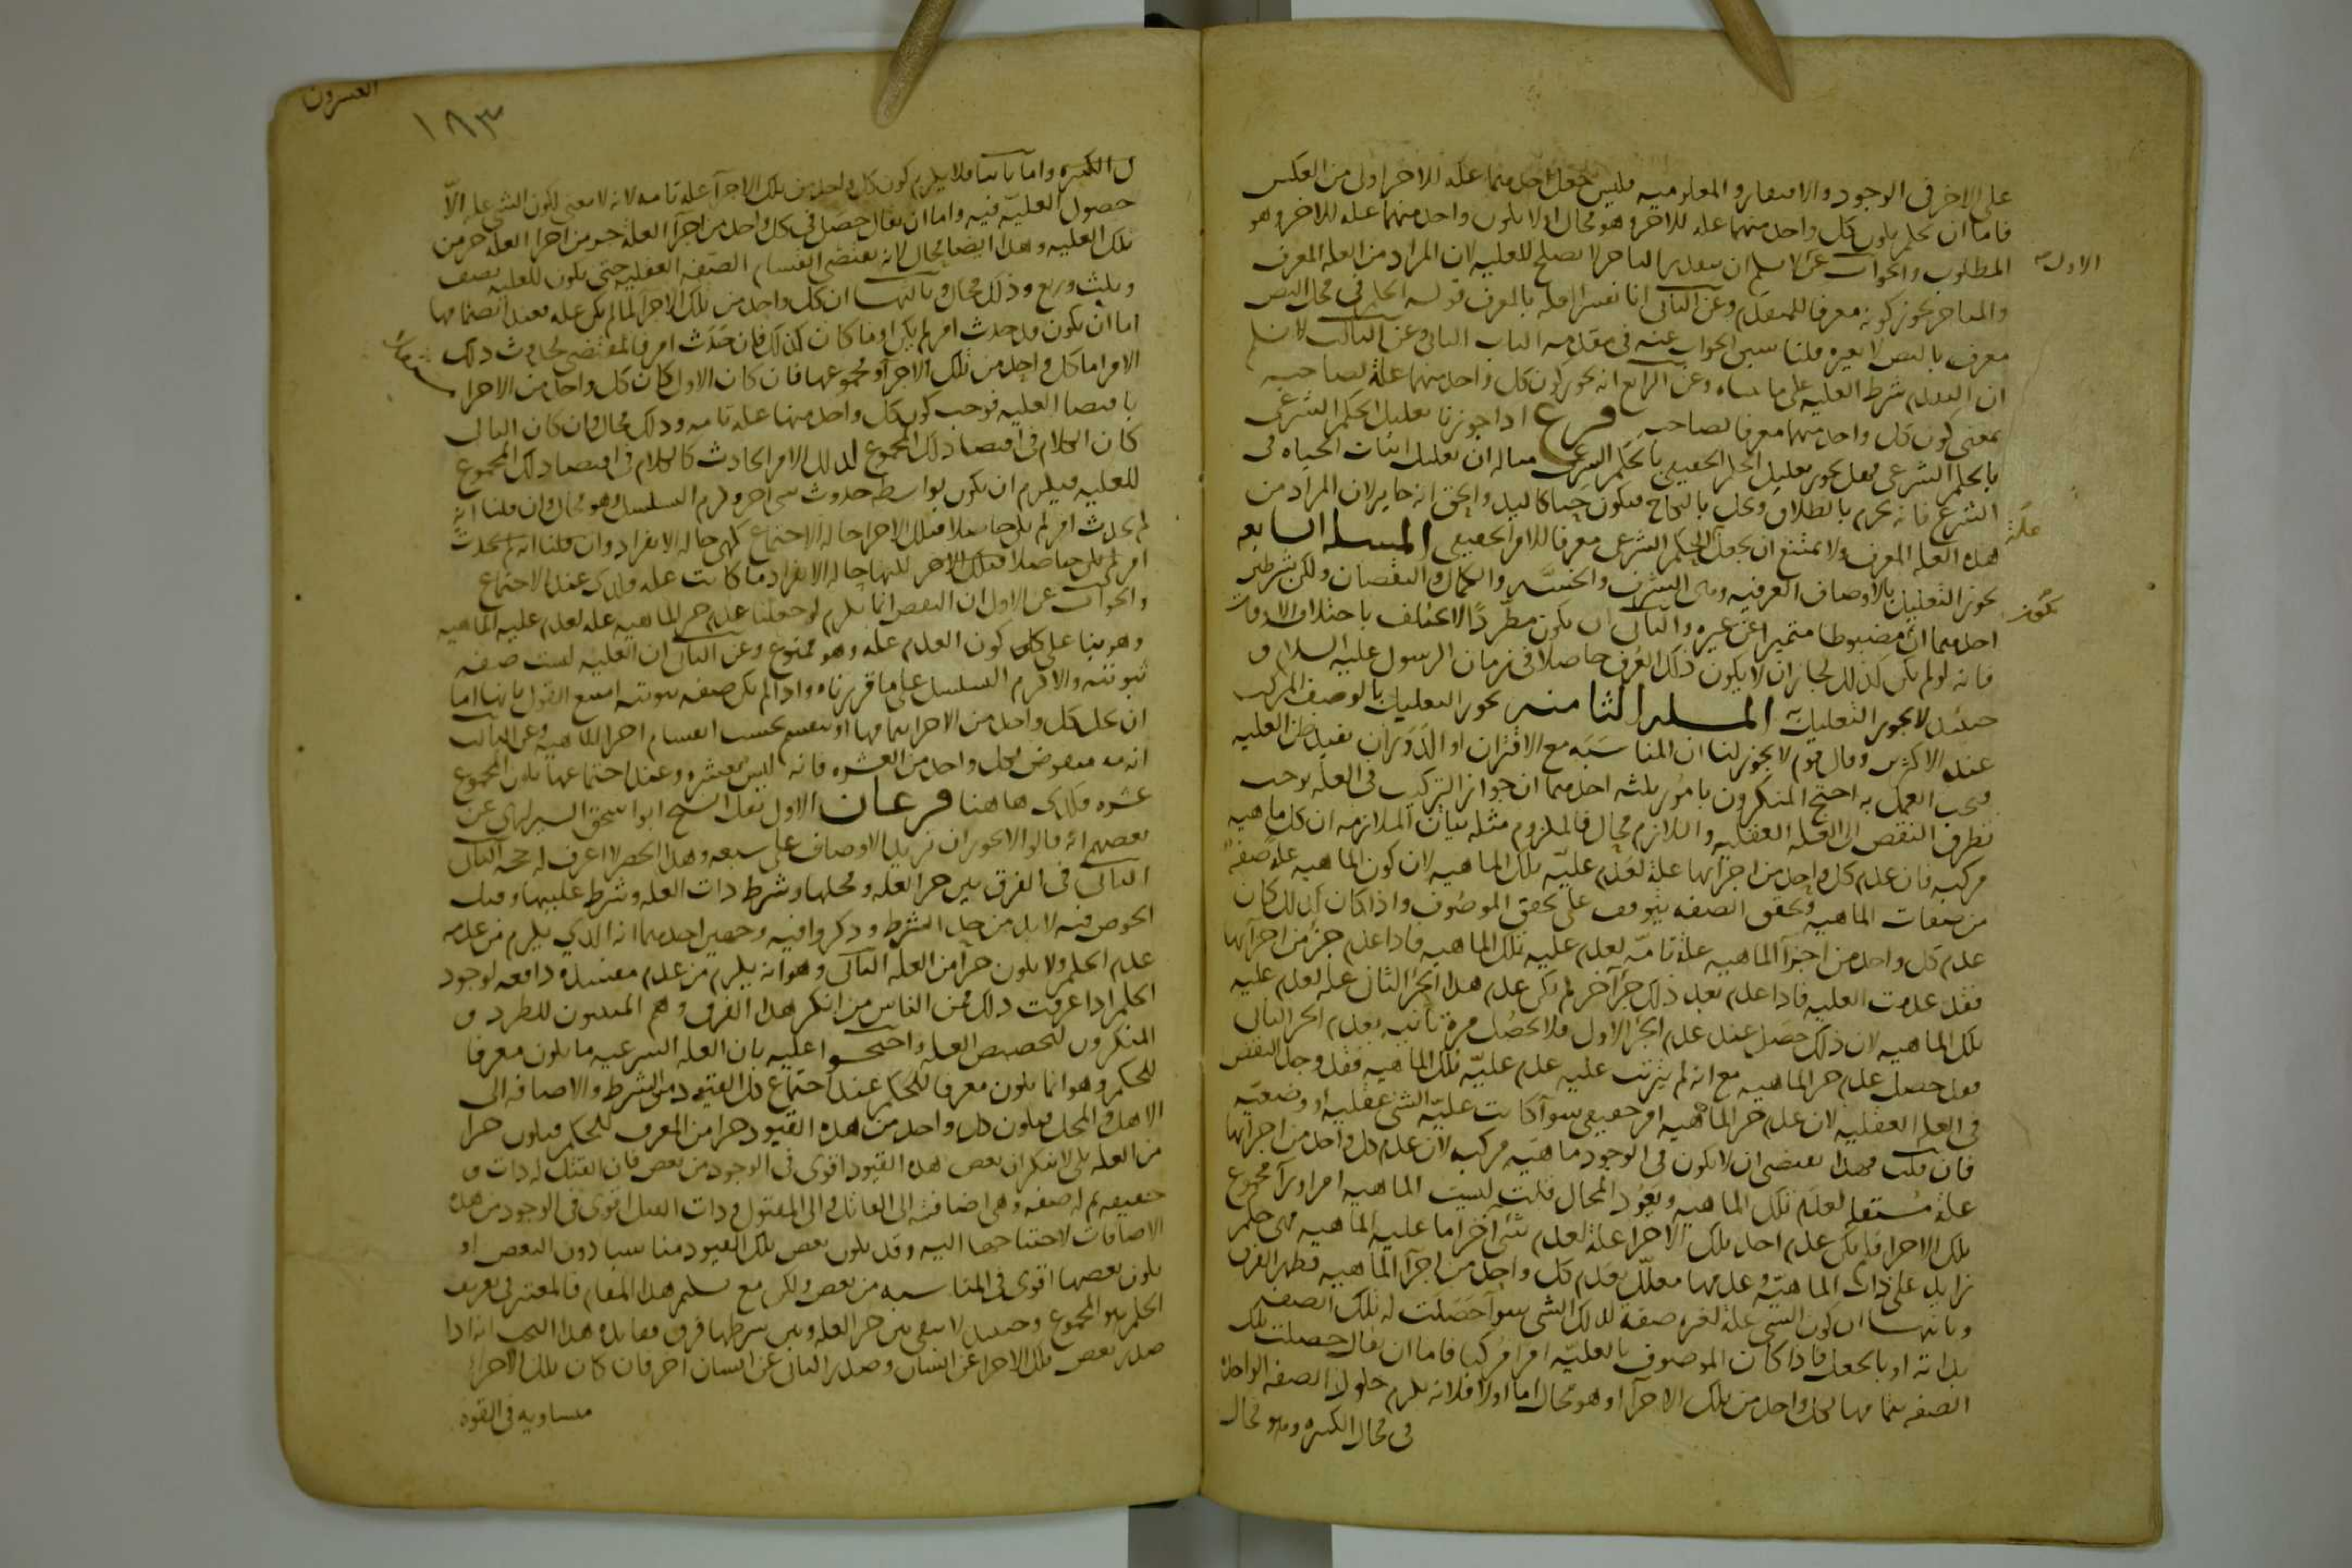 على الاخر فى الوجود والافتقار والمعلوميه فليس جعل احدهما عله للاخر اولى من العكس
فاما ان نحكم بكون كل واحد منهما عله للاخر وهو محال او لا يكون واحد منهما عله للاخر وهو
المطلوب والجواب عن الاول لا نسلم ان بتقدير التاخر لا يصلح للعليه لان المراد من العله المعرف
والمتاخر يجوز كونه معرفا للمتقدم وعن الثانى انا نفسر العله بالمعرف قوله الحكم فى محل النص
معرف بالنص لا بغيره قلنا سبق الجواب عنه فى مقدمه الباب الثانى وعن الثالث لا نسلم
ان التقدم شرط العليه على ما بيناه وعن الرابع انه يجوز كون كل واحد منهما علة لصاحبه
بمعنى كون كل واحد منهما معرفا لصاحبه فرع اذا جوزنا تعليل الحكم الشرعى
بالحكم الشرعى فهل يجوز تعليل الحكم الحقيقى بالحكم الشرعى مثاله ان نعلل اثبات الحياه فى
الشعر بانه يحرم بالطلاق ويحل بالنكاح فيكون حيا كاليد والحق انه جايز لان المراد من
هذه العله المعرف ولا يمتنع ان يجعل الحكم الشرعى معرفا للامر الحقيقى المسله السابعه
يجوز التعليل بالاوصاف العرفيه وهى الشرف والخسه والكمال والنقصان ولكن بشرطين
احدهما ان يكون مضبوطا متميزا عن غيره والثانى ان يكون مطردا لا يختلف باختلاف الاوقات
فانه لو لم يكن كذلك لجاز ان لا يكون ذلك العرف حاصلا فى زمان الرسول عليه السلام و
حينئذ لا يجوز التعليل المسله الثامنه يجوز التعليل بالوصف المركب
عند الاكثرين وقال قوم لا يجوز لنا ان المناسبه مع الاقتران او الدوران يفيد ظن العليه
فيجب العمل به احتج المنكرون بامور ثلثه احدهما ان جواز التركيب فى العله يوجب
تطرق النقض الى العله العقليه واللازم محال فالملزوم مثله بيان الملازمه ان كل ماهيه
مركبه فان عدم كل واحد من اجزآئها علة لعدم عليه تلك الماهيه لان كون الماهيه علة صفة
من صفات الماهيه وتحقق الصفه يتوقف على تحقق الموصوف واذا كان كذلك كان
عدم كل واحد من اجزآ الماهيه علة تامه لعدم عليه تلك الماهيه فاذا عدم جزء من اجزآئها
فقد عدمت العليه فاذا عدم بعد ذلك جزآ اخر لم يكن عدم هذا الجزء الثانى علة لعدم عليه
تلك الماهيه لان ذلك حصل عند عدم الجزء الاول فلا يحصل مرة ثانيه بعدم الجزء الثانى
فقد حصل عدم جزء الماهيه مع انه لم يترتب عليه عدم عليه تلك الماهيه فقد وجد النقض
فى العله العقليه لان عدم جزء الماهيه امر حقيقى سوآ كانت عليه الشى عقليه او وضعيه
فان قلت فهذا يقتضى ان لا يكون فى الوجود ماهيه مركبه لان عدم كل واحد من اجزآئها
علة مستقله لعدم تلك الماهيه ويعود المحال قلت ليست الماهيه امرا ورآ مجموع
تلك الاجزا فلم يكن عدم احد تلك الاجزا علة لعدم شى اخر اما عليه الماهيه فهى حكم
زايد على ذات الماهيه وعدمها معلل بعدم كل واحد من اجزآ الماهيه فظهر الفرق
وثانيها ان كون الشى علة لغيره صفة لذلك الشى سوآ حصلت له تلك الصفه
بذاته او بالجعل فاذا كان الموصوف بالعليه امرا مركبا فاما ان يقال حصلت تلك
الصفه بتمامها لكل واحد من تلك الاجزآ وهو محال اما اولا فلانه يلزم حلول الصفه الواحدة
فى محال الكثيره وهو محال
الاول
علة
يكون
العسرون
١٨٣
ل الكثيره واما ثانيا فلا يلزم كون كل واحد من تلك الاجزآ علة تامه لانه لا معنى لكون الشى علة الا
حصول العليه فيه واما ان يقال حصل فى كل واحد من اجزآ العلة جزء من اجزا العله جزء من
تلك العليه وهذا ايضا محال لانه يقتضى انقسام الصفه العقليه حتى يكون للعليه نصف
وثلث وربع وذلك محال وثالثها ان كل واحد من تلك الاجزآ لما لم يكن علة فعند انضمامها
اما ان يكون قد حدث امر لم يكن او ما كان كذلك فان حدث امر فالمقتضى لحدوث ذلك
الامر اما كل واحد من تلك الاجزآ او مجموعها فان كان الاول كان كل واحد من الاجزا
باقتضا العليه فوجب كون كل واحد منها علة تامه وذلك محال وان كان الثانى
كان الكلام فى اقتضا ذلك المجموع لذلك الامر الحادث كالكلام فى اقتضا ذلك المجموع
للعليه فيلزم ان يكون بواسطه حدوث شى اخر ولزم التسلسل وهو محال وان قلنا انه
لم يحدث امر لم يكن حاصلا فتلك الاجزا حالة الاجتماع كهى حالة الانفراد وان قلنا انه لم يحدث
امر لم يكن حاصلا فتلك الاجزا كانها حالة الانفراد ما كانت علة وكذلك عند الاجتماع
والجواب عن الاول ان النقض انما يلزم لو جعلنا عدم جزء الماهيه علة لعدم عليه الماهيه
وهو بنا على كون العدم علة وهو ممنوع وعن الثانى ان العليه ليست صفه
ثبوتيه والا لزم التسلسل على ما قررناه واذا لم يكن صفه ثبوتيه امتنع القول بانها اما
ان تحل كل واحد من الاجزا بتمامها او تنقسم بحسب انقسام اجزا الماهيه وعن الثالث
انه منقوض بكل واحد من العشره فانه ليس بعشره وعند اجتماعها يكون المجموع
عشره فكذلك هاهنا فرعان الاول نقل الشيخ ابو اسحق الشيرازى عن
بعضهم انه قال لا يجوز ان تزيد الاوصاف على سبعه وهذا الحصر لا اعرف له حجه الثانى
الثانى فى الفرق بين جزء العله ومحلها وشرط ذات العله وشرط عليتها وقبل
الخوض فيه لا بد من حد الشرط وذكروا فيه وجهين احدهما انه الذى يلزم من عدمه
عدم الحكم ولا يكون جزآ من العله الثانى وهو انه يلزم من عدمه مفسده دافعه لوجود
الحكم اذا عرفت ذلك فمن الناس من انكر هذا الفرق وهم المثبتون للطرد و
المنكرون لتخصيص العله واحتجوا عليه بان العله الشرعيه ما يكون معرفا
للحكم وهو انما يكون معرفا للحكم عند اجتماع كل القيود من الشرط والاضافه الى
الاهل والمحل فيكون كل واحد من هذه القيود جزا من المعرف للحكم فيكون جزا
من العله بلى لا ينكر ان بعض هذه القيود اقوى فى الوجود من بعض فان القتل له ذات و
حقيقه ثم له صفه وهى اضافته الى القاتل والى المقتول وذات القتل اقوى فى الوجود من هذه
الاضافات لاحتياجها اليه وقد يكون بعض تلك القيود مناسبا دون البعض او
يكون بعضها اقوى فى المناسبه من بعض ولكن مع تسليم هذا المقام فالمعتبر فى تعريف
الحكم هو المجموع وحينئذ لا يبقى بين جزء العله وبين شرطها فرق وفايده هذا البحث انه اذا
صدر بعض تلك الاجزا عن انسان وصدر الثانى عن انسان اخر فان كان تلك الاجزا
متساويه فى القوه